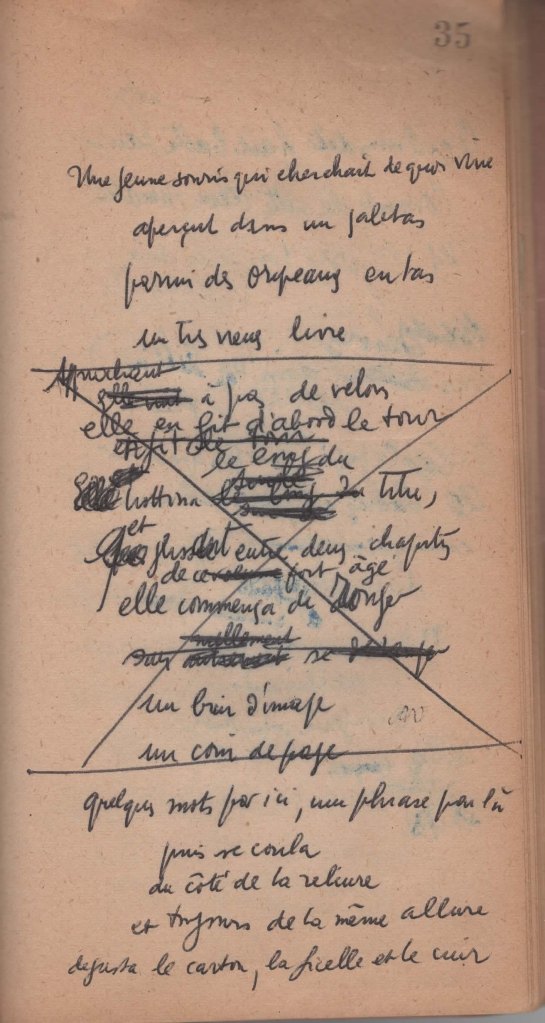 35
Une jeune souris qui cherchait de quoi vivre
aperçut dans un galetas
parmi des oripeaux en tas
un très vieux livre
Approchant
elle vint à pas de velours
elle en fit d'abord le tour
et fit le tour
le long du
trottina le long du titre,
et
glissant entre deux chapitres
de ce fort âgé
elle commença de ronger
sans se
un brin d'image
un coin de page
quelques mots par ici, une phrase par là
puis se coula
du côté de la reliure
et toujours de la même allure
dégusta le carton, la ficelle et le cuir